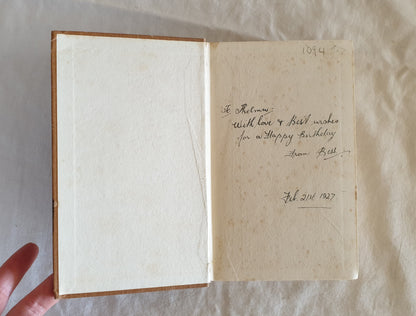 1094
To Thelma:
With love & Best wishes
for a Happy Birthday
From
Feb. 21st 1927